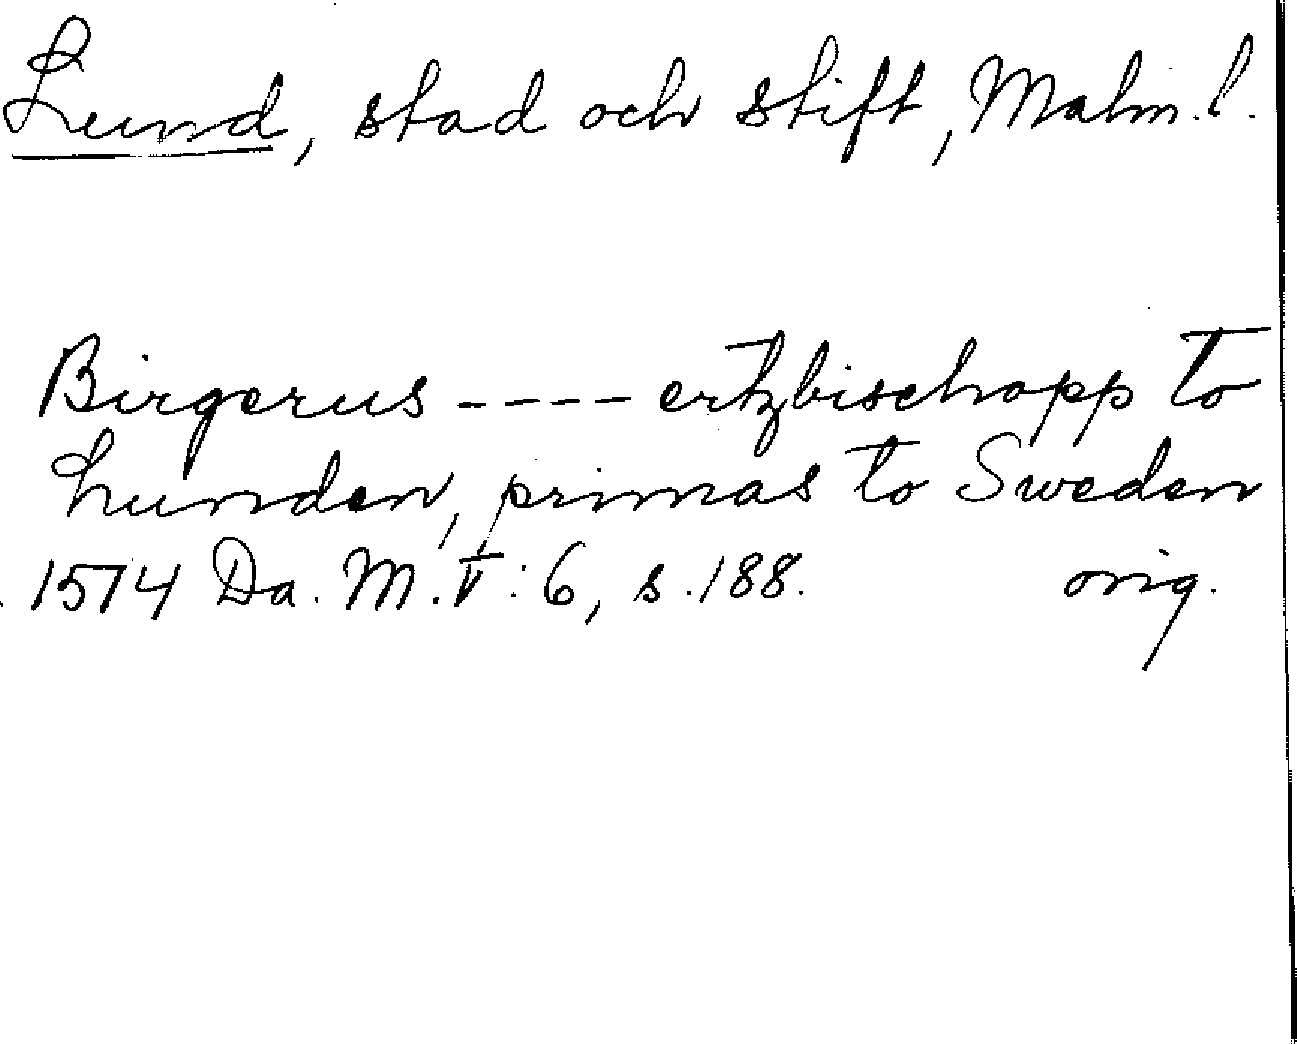 Lund, stad och stift, Malm. l.
Birgerus ---- ertzbischopp to
Lunden, primas to Sweden
1514 Da. M. V: 6, s. 188. orig.